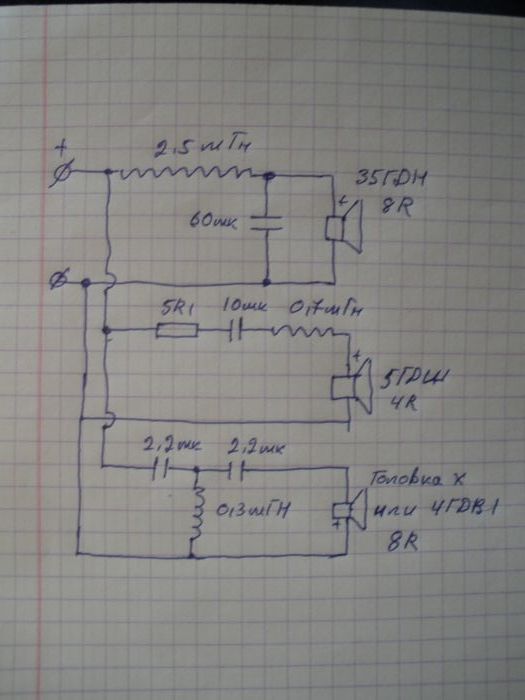 +
2,5 мГн
35ГДН
8R
60мк
+
5R1
10мк
0,7мГн
+
5ГДШ
4R
2,2мк
2,2мк
Головка X
или 4ГДВ1
8R
0,3мГН
+